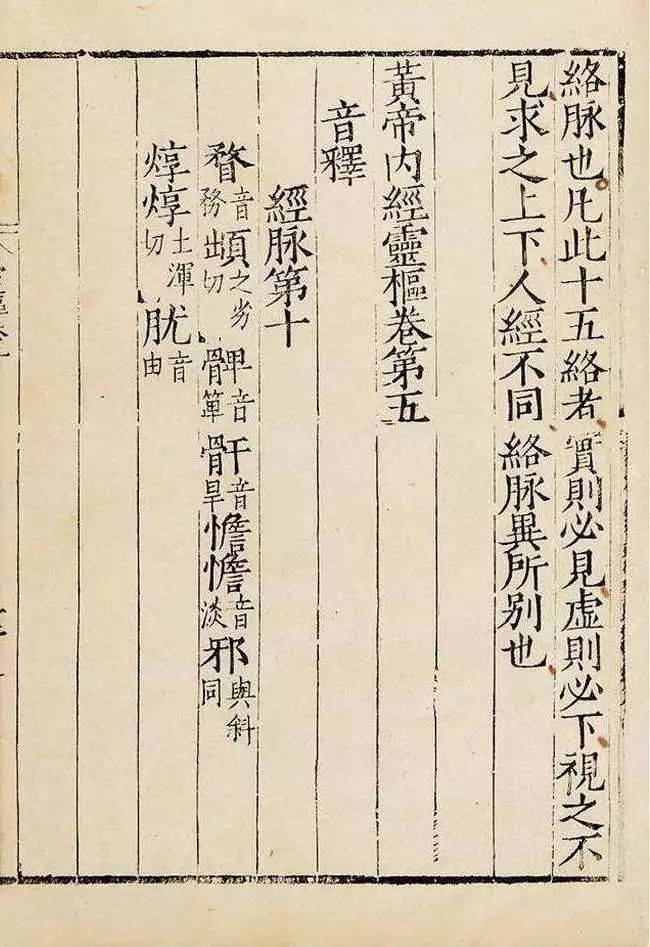 絡脉也凡此十五絡者實則必見虛則必下視之不
見求之上下人經不同絡脉異所别也
黃帝内經靈樞卷第五
音釋
經脉第十
瞀音務䪼之劣切音箄骭音旱憺憺音淡邪與斜同
焞焞土渾切肬音由